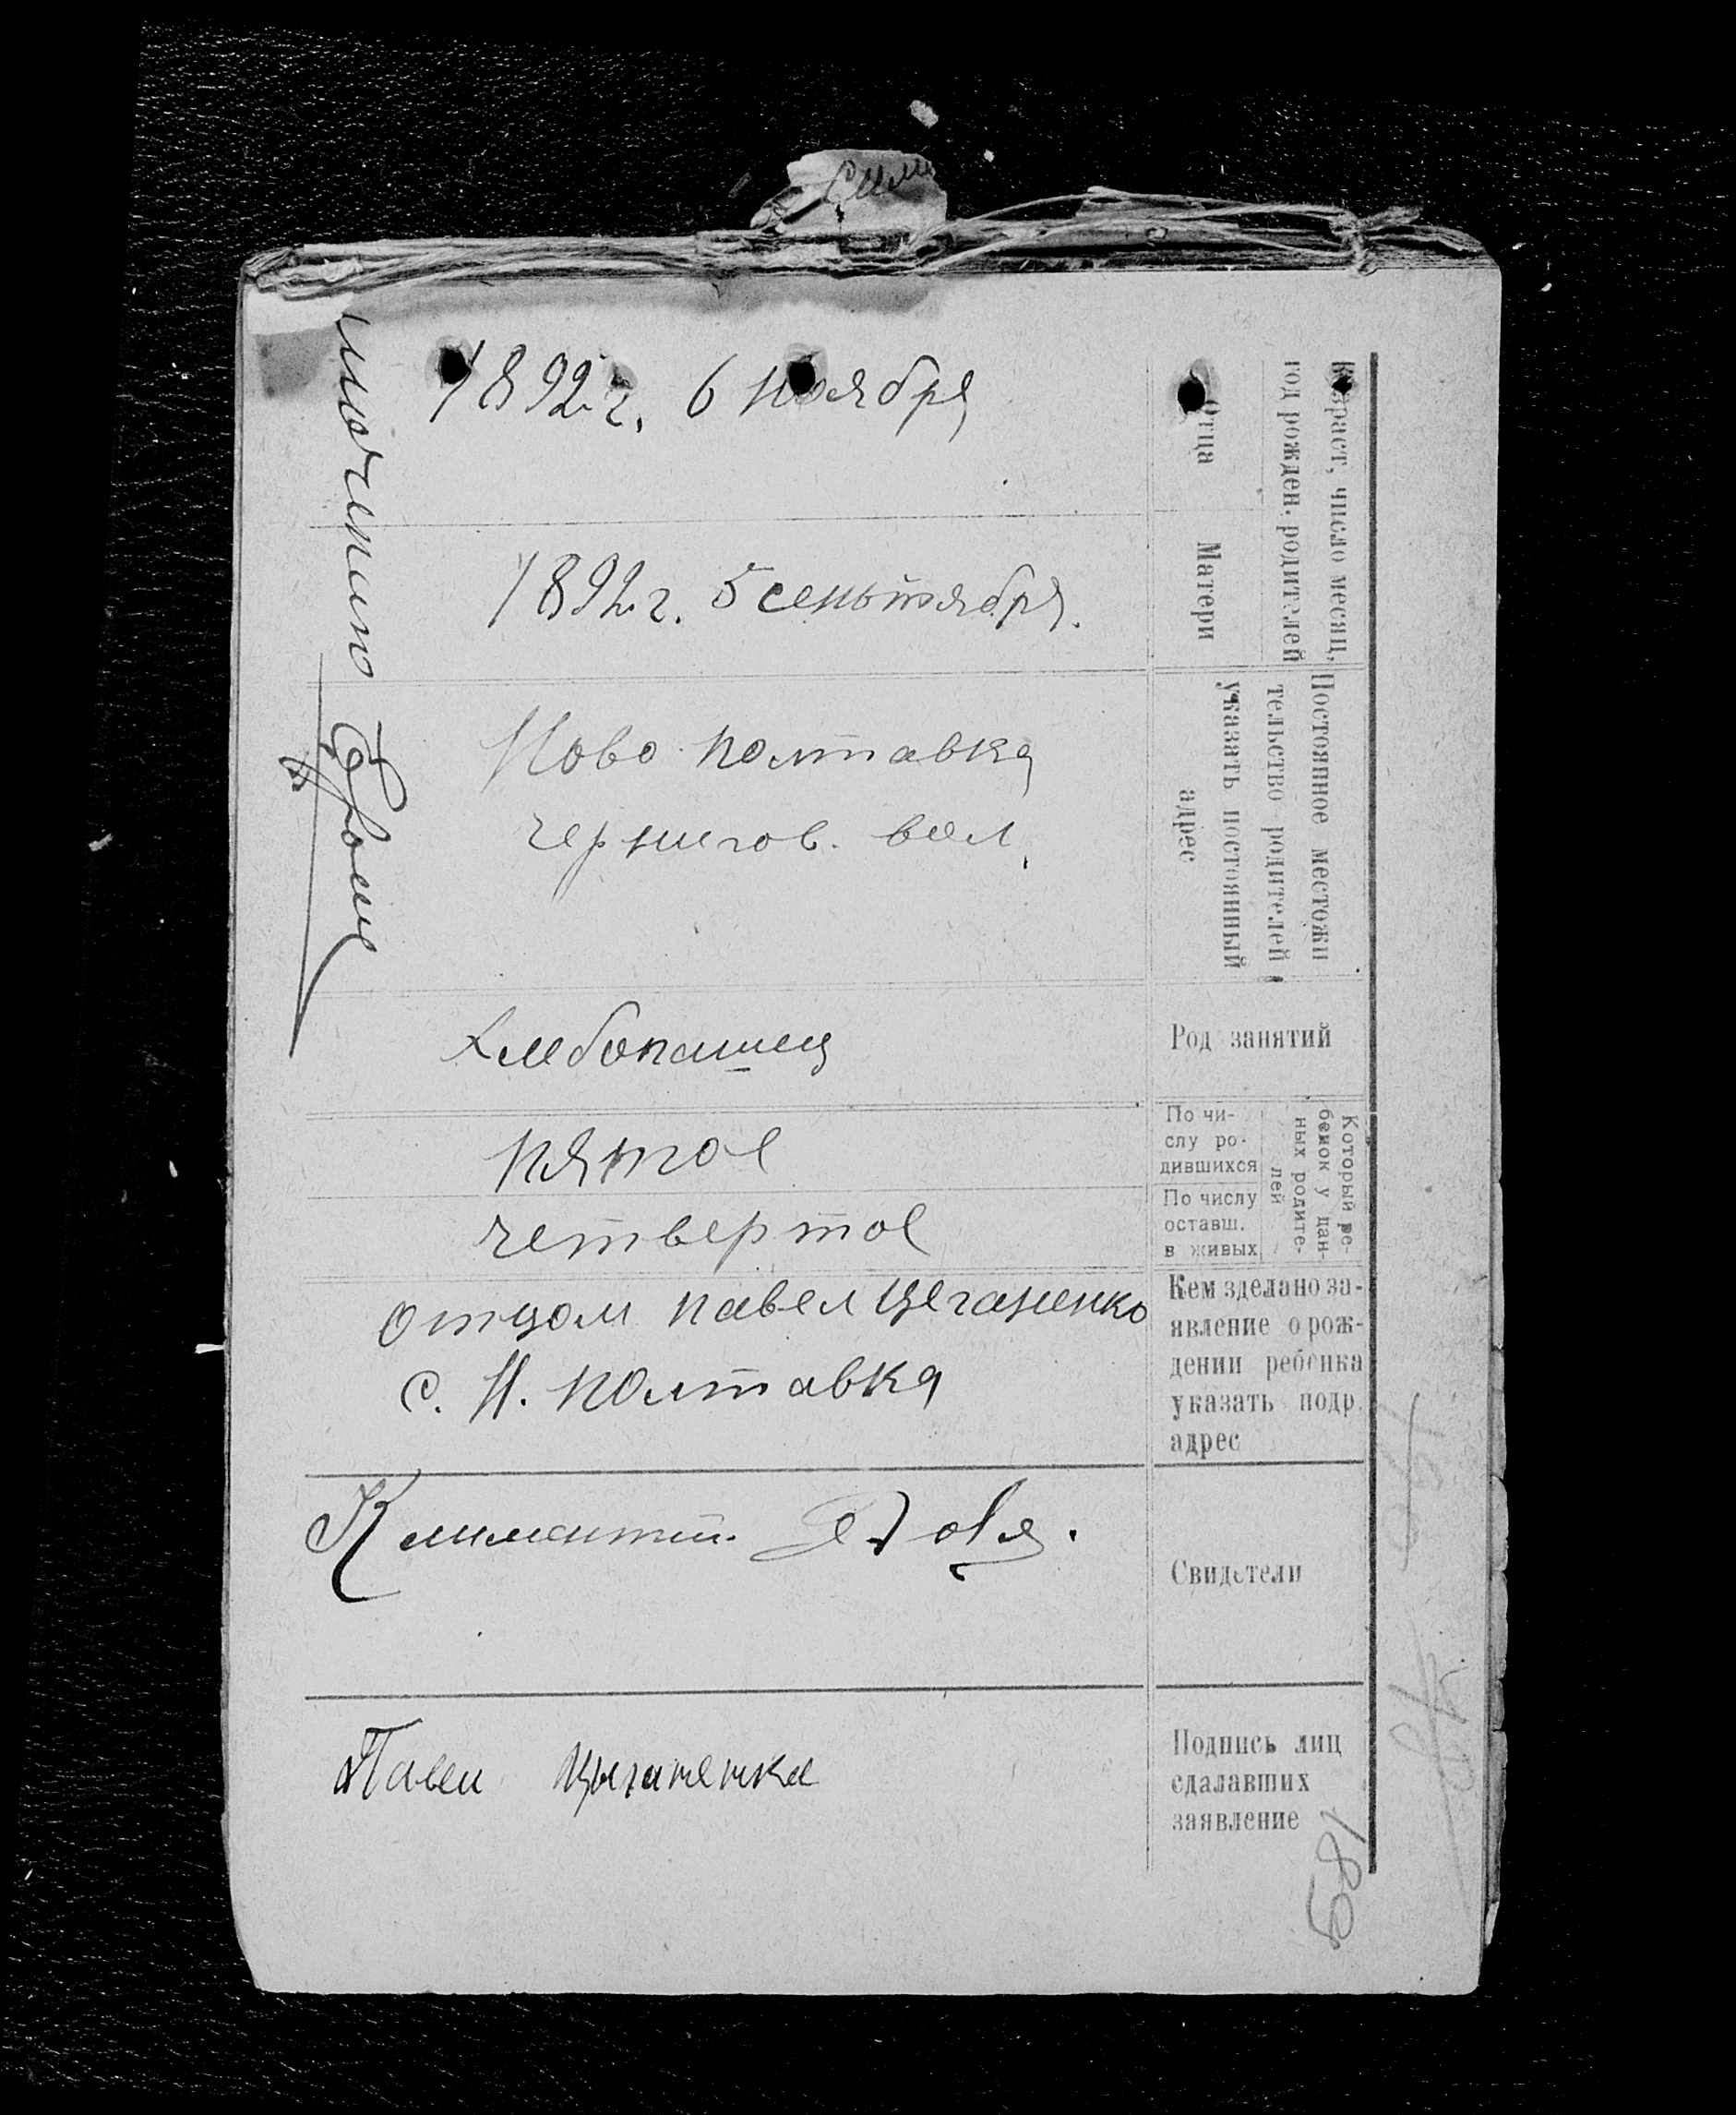 Возраст, число месяц,
год рожден. родителей
Отца
1892 г. 6 ноября
Матери
1892 г. 5 сеньтября.
Постоянное местожи
тельство родителей и
указать постоянный
адрес
Ново полтавка
чернигов. вол.
Род занятий
Хлебопашец
Который ре-
бенок у дан-
ных родите-
лей
По чи-
слу ро-
дившихся
пятое
По числу
оставш.
в живых
четвертое
Кем зделано за-
явление о рож-
дении ребенка
указать подр.
адрес
отцом павел Цеганенко
с. Н. полтавка
Свидетели
Климентий
Подпись лиц
сдалавших
заявление
Павел Цыганенка
189